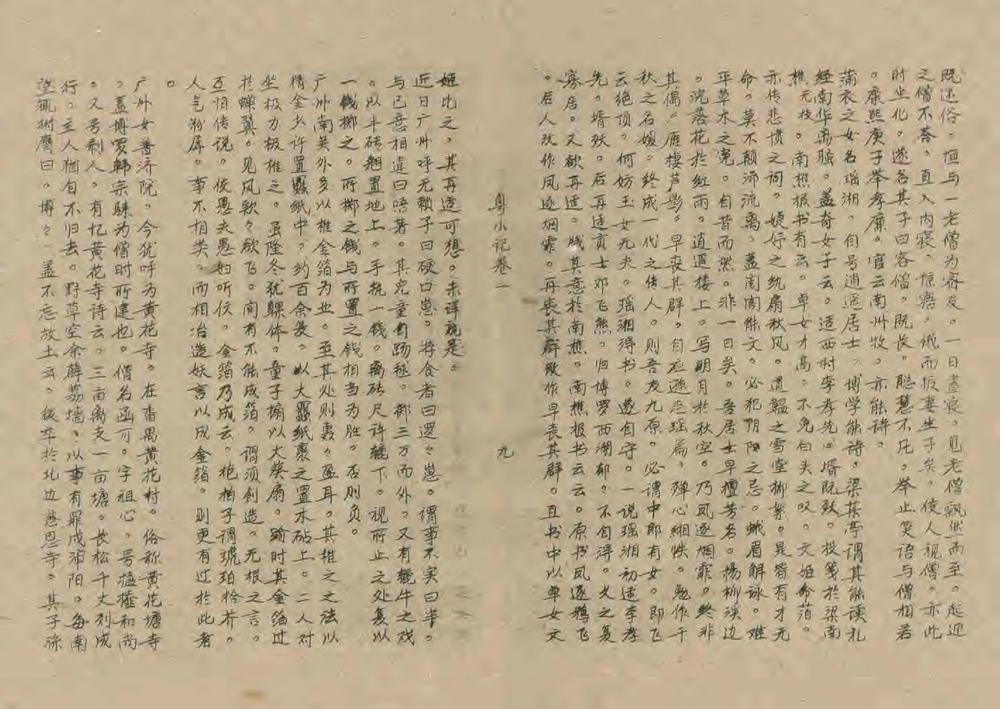 既还俗。恒与一老僧为密友。一日昼寝。见老僧飘然而至。起迎
之僧不答。直入内寝。惊寤。俄而报妻生子矣。使人视僧。亦此
时坐化。遂名其子曰咨僧。既长。聪慧不凡。举止笑语与僧相若
。康熙庚子举孝廉。官云南州牧。亦能诗。
蒲衣之女名瑶湘。自号逍遥居士。博学能诗。梁药亭谓其能读礼
经南华离骚。盖奇女子云。适西村李孝先。婿既殁。投笺于梁南
樵元枝。南樵报书有云。卓女才高。不免白头之叹。文姬命薄。
亦传悲愤之词。婕妤之纨扇秋风。道韫之雪堂柳絮。异皆有才无
命。莫不颠沛流离。盖闺阁能文。必犯阴阳之忌。蛾眉解咏。难
平草木之
。自昔而然。非一日矣。吾居士早擅芳名。杨柳溪边
。浣落花于红雨。逍遥楼上。写明月于秋空。乃凤逐烟霏。终非
其偶。雁栖芦影。早丧其群。自应遊
篇。殚心湘帙。勉作千
秋之名媛。终成一代之传人。则吾友九原。必谓中郎有女。即飞
云绝顶。何妨玉女无夫。瑶湘得书。遂自守。一说瑶湘初适李孝
先。婿殁。后再适贡士邓飞熊。归博罗西湖邨。不自得。久之复
寡居。又欲再适。贱其意于南樵。南樵报书云云。原书凤逐鸦飞
。后人改作凤逐烟霏。再丧其群改作早丧其群。且书中以卓女文
粤小记卷一
九
姬比之。其再适可想。未详孰是。
近日广州呼无赖子曰硬口崽。将食者曰逻之崽。谓事不实曰半。
与己意相违曰唔著。其儿童自踢毬。掷三万而外。又有
牛之戏
。以半砖翘置地上。手执一钱。离砖尺许辘下。视所止之处复以
一钱掷之。所掷之钱与所置之钱相当为胜。否则负。
广州南关外多以椎金箔为业。至其处则轰之盈耳。其椎之之法以
精金少许置蠹纸中。约百余叠。以大蠹纸裹之置木砧上。二人对
坐极力极椎之。虽隆冬犹躶体。童子搧以大葵扇。踰时其金箔过
于蝉翼。见风欻之欲飞。间有不能成箔。谓须创造。无根之言。
互怕传说。使愚夫愚妇听伏。金箔乃成云。枪柏子谓琥珀拾芥。
人气粉犀。事不相类。而相冶造妖言以成金箔。则更有过于此者
。
广州女普济院。今犹呼为黄花寺。在番禺黄花村。俗称黄花塘寺
。盖博罗韩宗騋为僧时所建也。僧名函可。字祖心。号搕𢶍和尚
。又号剩人。有忆黄花寺诗云。三亩离支一亩塘。长松千丈列成
行。主人犹自不归去。野草空余薜荔墙。以事有罪戍沈阳。每南
望輒抚膺曰。博之。盖不忘故土云。后卒于北边慈恩寺。其子弥